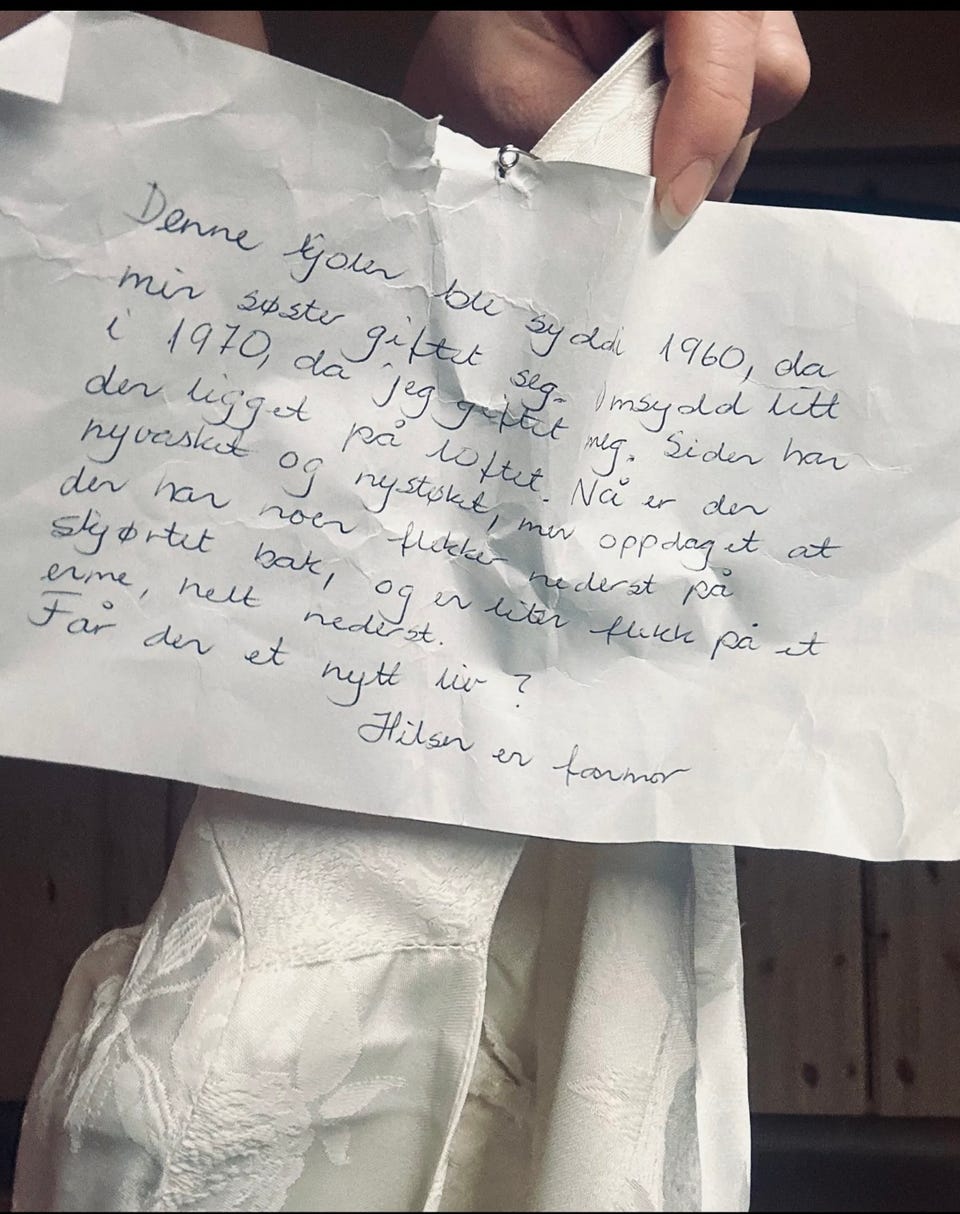 Denne kjolen ble sydd i 1960, da
min søster giftet seg. Omsydd litt
i 1970, da jeg giftet meg. Siden har
den ligget på loftet. Nå er den
nyvasket og nystøket, men oppdaget at
den har noen flekker nederst på
skjørtet bak, og en liten flekk på et
erme, helt nederst.
Får den et nytt liv ?
Hilsen en farmor